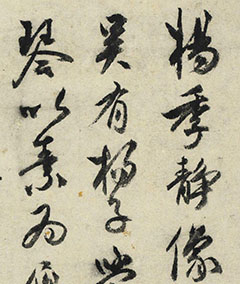 楊季靜像
吳有楊子
琴以素為